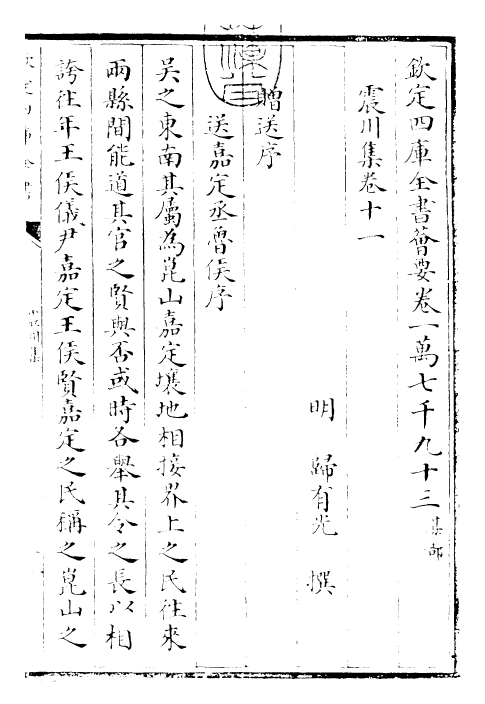 欽定四庫全書薈要卷一萬七千九十三集部
震川集卷十一
明 歸有光 撰
贈送序
送嘉定丞魯侯序
吳之東南其屬為崑山嘉定壤地相接界上之民往來
兩縣間能道其官之賢與否或時各舉其令之長以相
誇往年王侯儀尹嘉定王侯賢嘉定之民稱之崑山之
欽定四庫全書
震川集